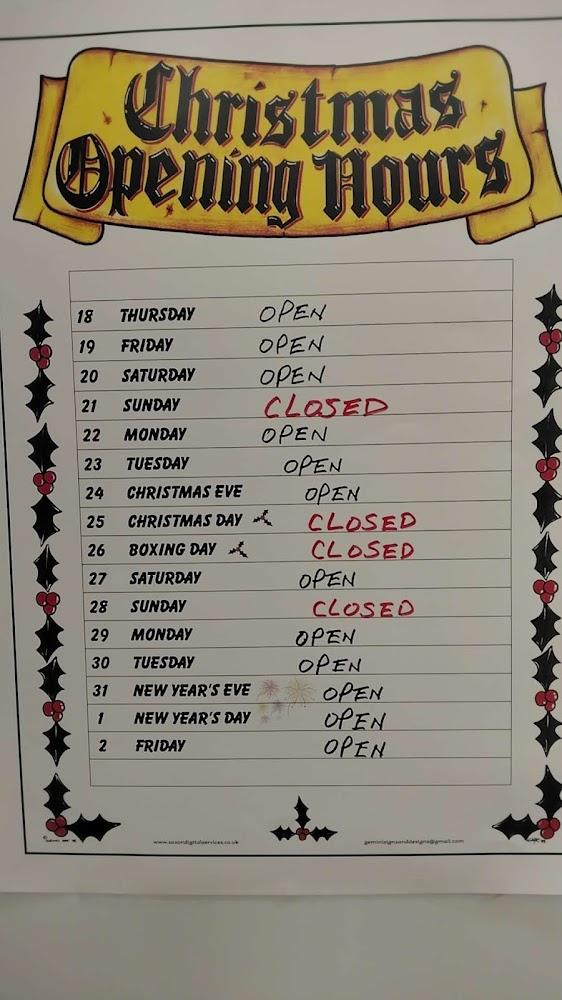 Christmas
Opening Hours
18 THURSDAY OPEN
19 FRIDAY OPEN
20 SATURDAY OPEN
21 SUNDAY CLOSED
22 MONDAY OPEN
23 TUESDAY OPEN
24 CHRISTMAS EVE OPEN
25 CHRISTMAS DAY CLOSED
26 BOXING DAY CLOSED
27 SATURDAY OPEN
28 SUNDAY CLOSED
29 MONDAY OPEN
30 TUESDAY OPEN
31 NEW YEAR'S EVE OPEN
1 NEW YEAR'S DAY OPEN
2 FRIDAY OPEN
www.saxondigitalservices.co.uk geminisignsanddesigns@gmail.com